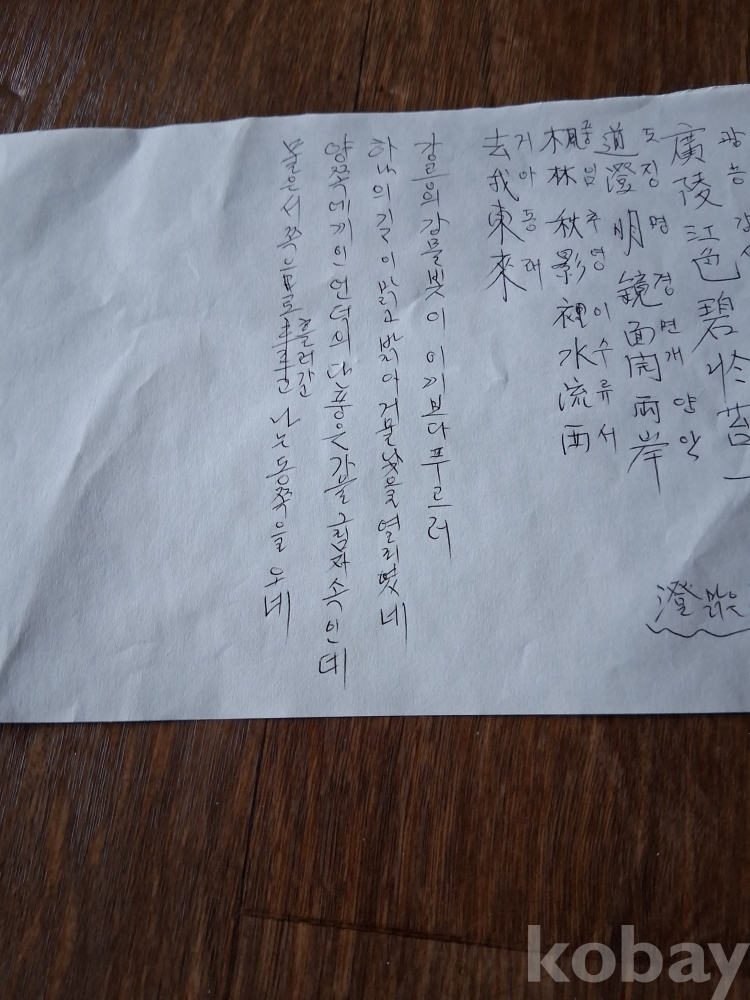 광능 강시
廣陵江色碧於苔一
도징 명 경 면 개 양 안
道澄明鏡面開兩岸
풍림 추영 이수류서
楓林秋影裡水流西
거아동래
去我東來
澄 맑은
강물빛이 이끼보다 푸르러
하나의길이 맑고 밝아 거울낯을 열리엿네
양쪽에끼인 언덕의 단풍은 가을 그림자 속인데
물은서쪽으로 흘러간 나는동쪽을 오네
kobay